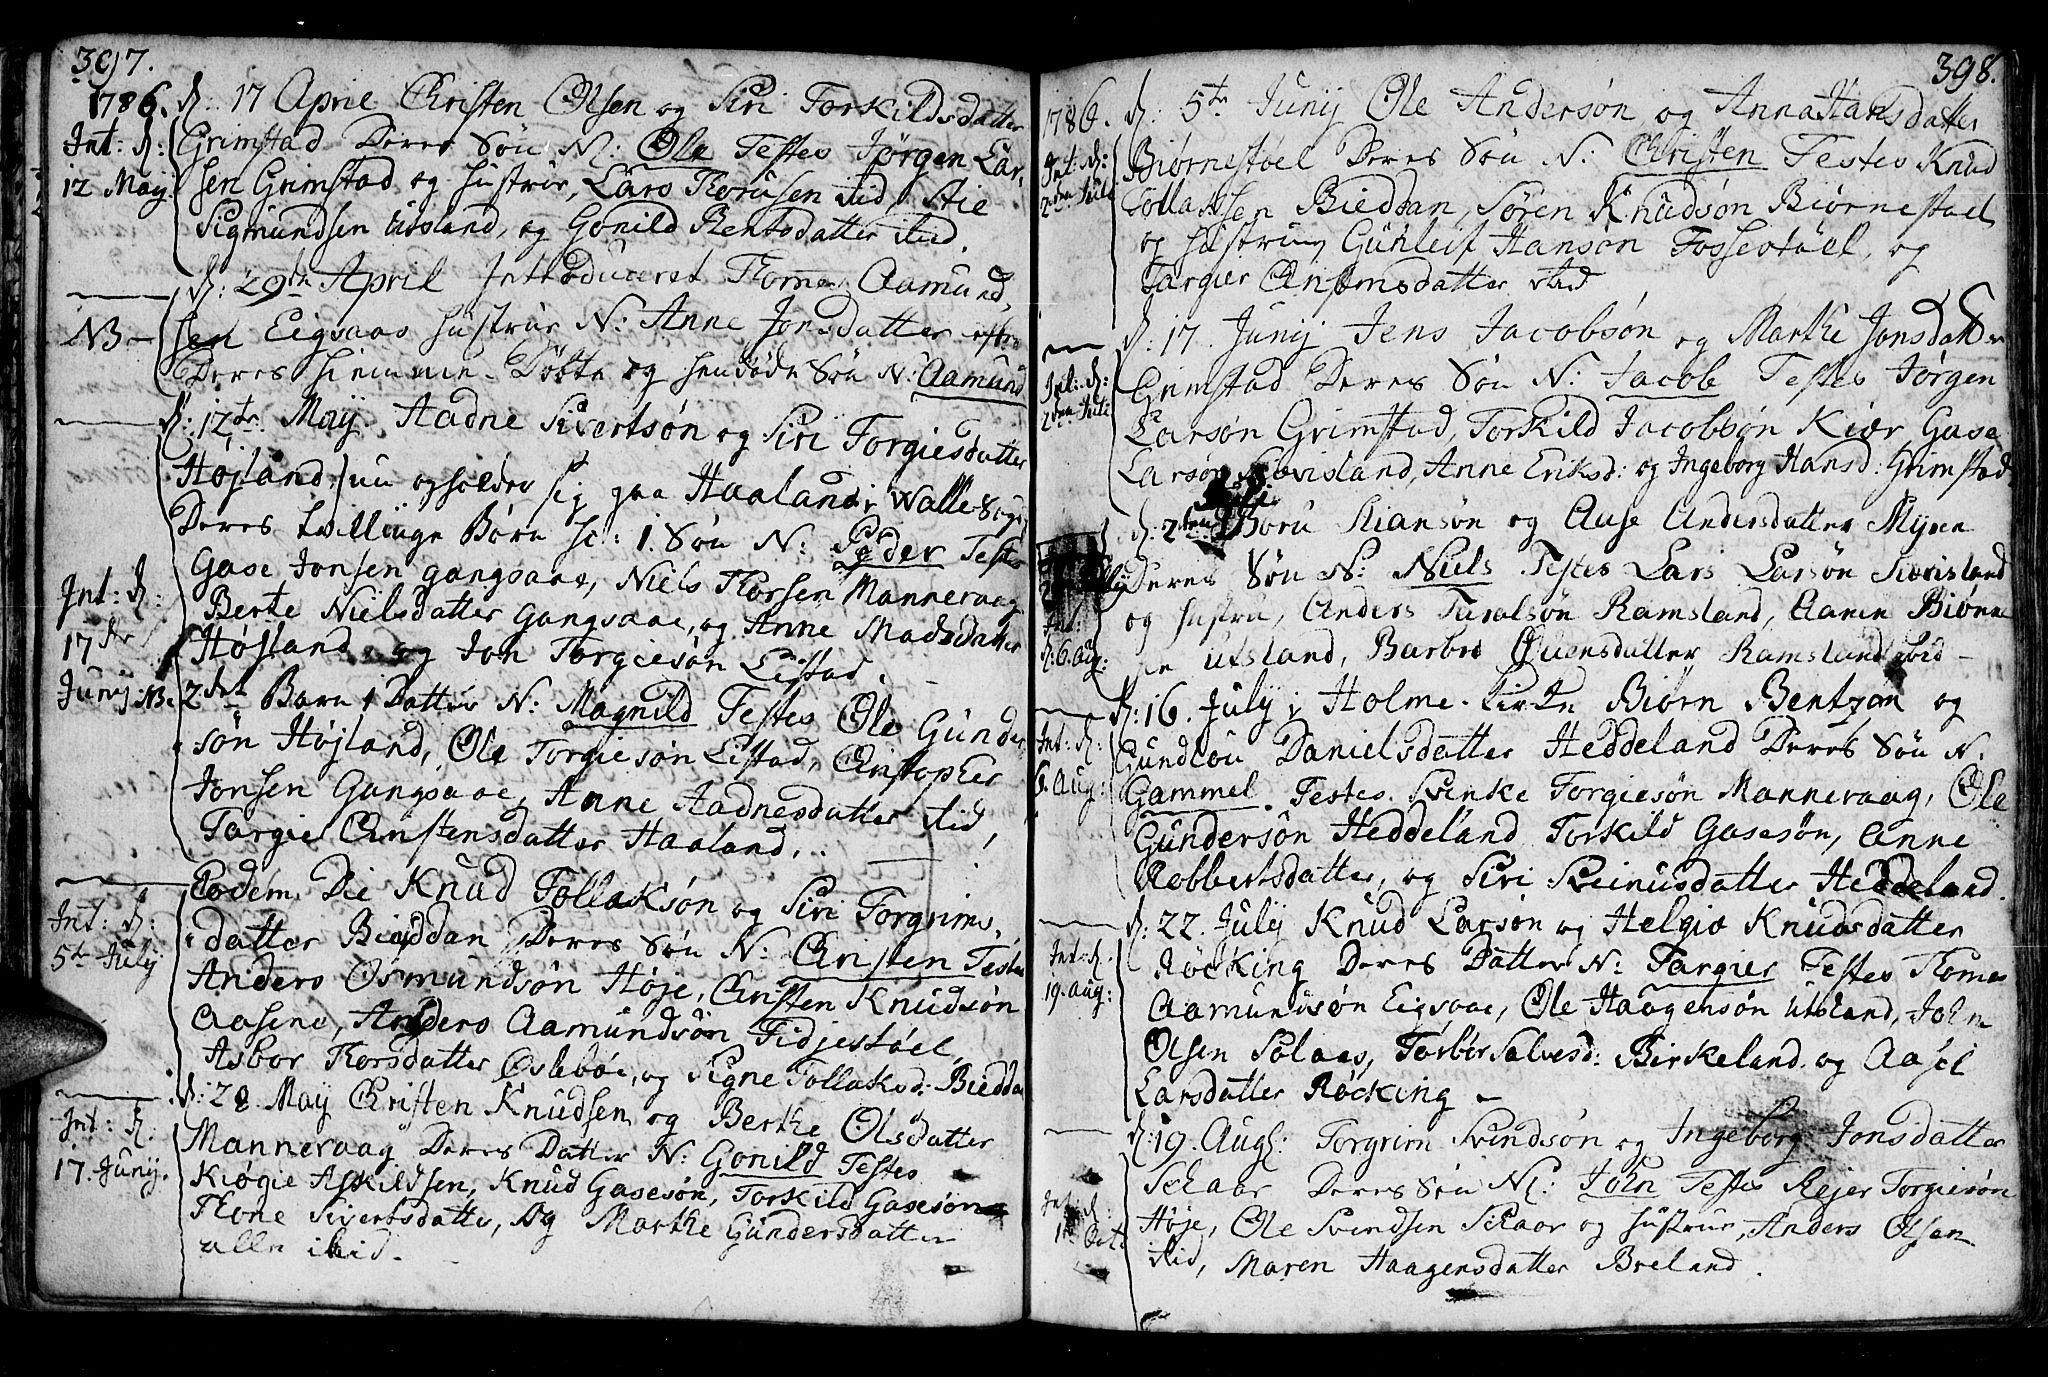 397.
1786. d: 17 Aprie Christen Olsen og Siri Torkildsdatter
Int: d: Grimstad Deres Søn N: Ole Testes Jørgen Lar-
12 Maij. sen Grimstad og Hustrue, Lars Thorusen ibid, Aie
Sigmundsen Uisland, og Gonild Bentsdatter ibid.
d: 29de April Introduceret Thomes Aamund-
NB – sen Eigsaas Hustrue N: Anne Jonsdatter efter
Deres hiemme Døbte og hendøde Søn N: Aamund
d: 12te Maij Aadne Sivertsøn og Siri Torgiesdatter
Højland, nu opholder sig paa Haaland i Walle Sogn
Deres tvillinge Børn sc: 1. Søn N: Peder Testes
Gase Jonsen Gangsaae, Niels Thorsen Manneraag
Int: d: Berte Nielsdatter Gangsaae, og Anne Madsdatter
17de Højland, og Jon Torgiesøn Eistad.
Junij. NB. 2det Barn 1 Datter N: Magnild Testes Ole Gunder-
søn Højland, Ole Torgiesøn Eistad, Christopher
Jonsen Gangsaae, Anne Aadnesdatter ibid,
Targie Christensdatter Haaland.
Eodem Die Knud Tollaksøn og Siri Torgrims-
Int: d: datter Bieddan Deres Søn N: Christen Testes
5te Julij Anders Osmundsøn Høje, Christen Knudsøn
Aasene, Anders Aamundsøn Fidjestøel,
Asbor Thorsdatter Øslebøe, og Signe Tollaksd: Biedda
d: 28 Maij Christen Knudsen og Berthe Olsdatter
Int: d: Manneraag Deres Datter N: Gonild Testes
17. Junij. Kiøgie Askildsen, Knud Gasesøn, Torkild Gasesøn
Thone Sivertsdatter, og Marthe Gundersdatter
alle ibid.
398.
1786. d: 5te Junij Ole Andersøn og Anna Hansdatter
Int: d: Biørnestøel Deres Søn N: Christen Testes Knud
2den Julii Tollaksen Bieddan, Søren Knudsøn Biørnestøel
og Hustrue, Gunleif Hansøn Fossestøel, og
Targier Christensdatter ibid
d: 17. Junij Jens Jacobsøn og Marthe Jonsdatter
Int: d: Grimstad Deres Søn N: Jacob Testes Jørgen
2den Julii Larsøn Grimstad, Torkild Jacobsøn Kiær, Gase
Larsøn Siovisland, Anne Eriksd: og Ingeborg Hansd: Grimstad
d: 2den Boru Stiansøn og Aase Andersdatter Myren
Deres Søn N: Niels Testes Lars Larsøn Siovisland
Int: og Hustru, Anders Taralsøn Ramsland, Aanen Biørne
d: 6. Aug: Utsland, Barbro Ouensdatter Ramsland ibid –
d: 16. Julij i Holme Kirke Biørn Bentzon og
Int: d: Gundlou Danielsdatter Heddeland Deres Søn N:
6. Aug: Gammel. Testes Svenke Torgiesøn Manneraag, Ole
Gundersøn Heddeland Torkild Gasesøn, Anne
Robbertsdatter, og Siri Steinusdatter Heddeland.
d: 22. Julij Knud Larsøn og Helgie Knudsdatter
Int: d: Røcking Deres Datter N: Targier Testes Thomes
19. Aug: Aamundsøn Eigsaae, Ole Haagensøn Utsland, John
Olsen Solaas, Torbør Salvesd: Birkeland og Aasel
Larsdatter Røcking –
d: 19. Aug: Torgrim Svendsøn og Ingeborg Jonsdatter
Schaar Deres Søn N: John Testes Rejer Torgiesøn
Int: d: Høje, Ole Svendsen Schaar og Hustrue, Anders Olsen
1. Oct: ibid, Maren Haagensdatter Breland.